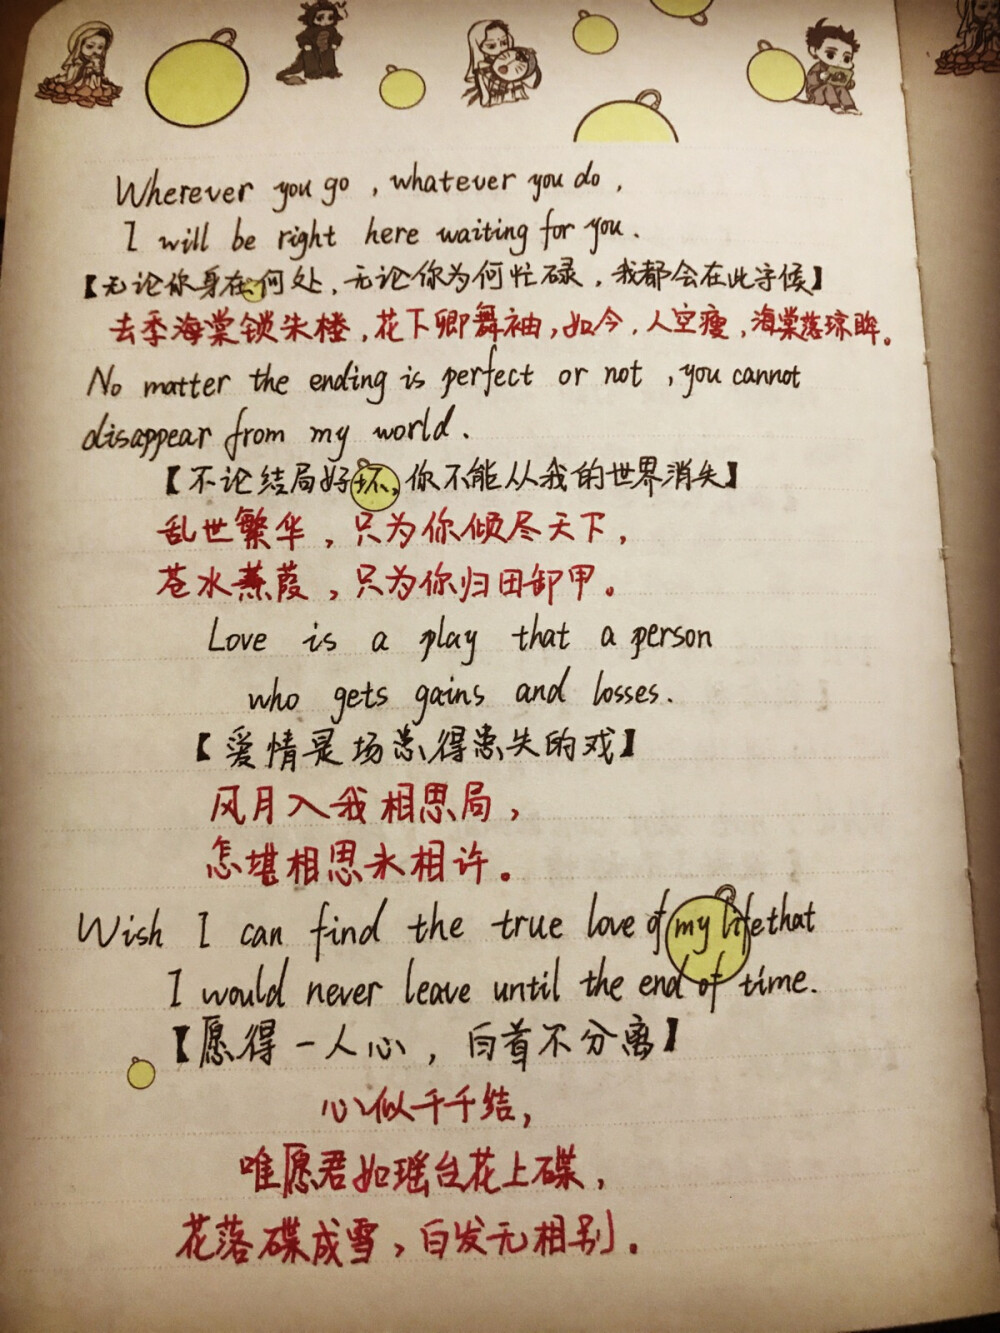 Wherever you go , whatever you do ,
I will be right here waiting for you .
【无论你身在何处，无论你为何忙碌，我都会在此守候】
去季海棠锁朱楼，花下卿舞袖，如今，人空瘦，海棠落琼眸。
No matter the ending is perfect or not , you cannot
disappear from my world .
【不论结局好坏，你不能从我的世界消失】
乱世繁华，只为你倾尽天下，
苍水蒹葭，只为你归田卸甲。
Love is a play that a person
who gets gains and losses .
【爱情是场患得患失的戏】
风月入我相思局，
怎堪相思未相许。
Wish I can find the true love of my life that
I would never leave until the end of time .
【愿得一人心，白首不分离】
心似千千结，
唯愿君如瑶台花上碟，
花落碟成雪，白发无相别。